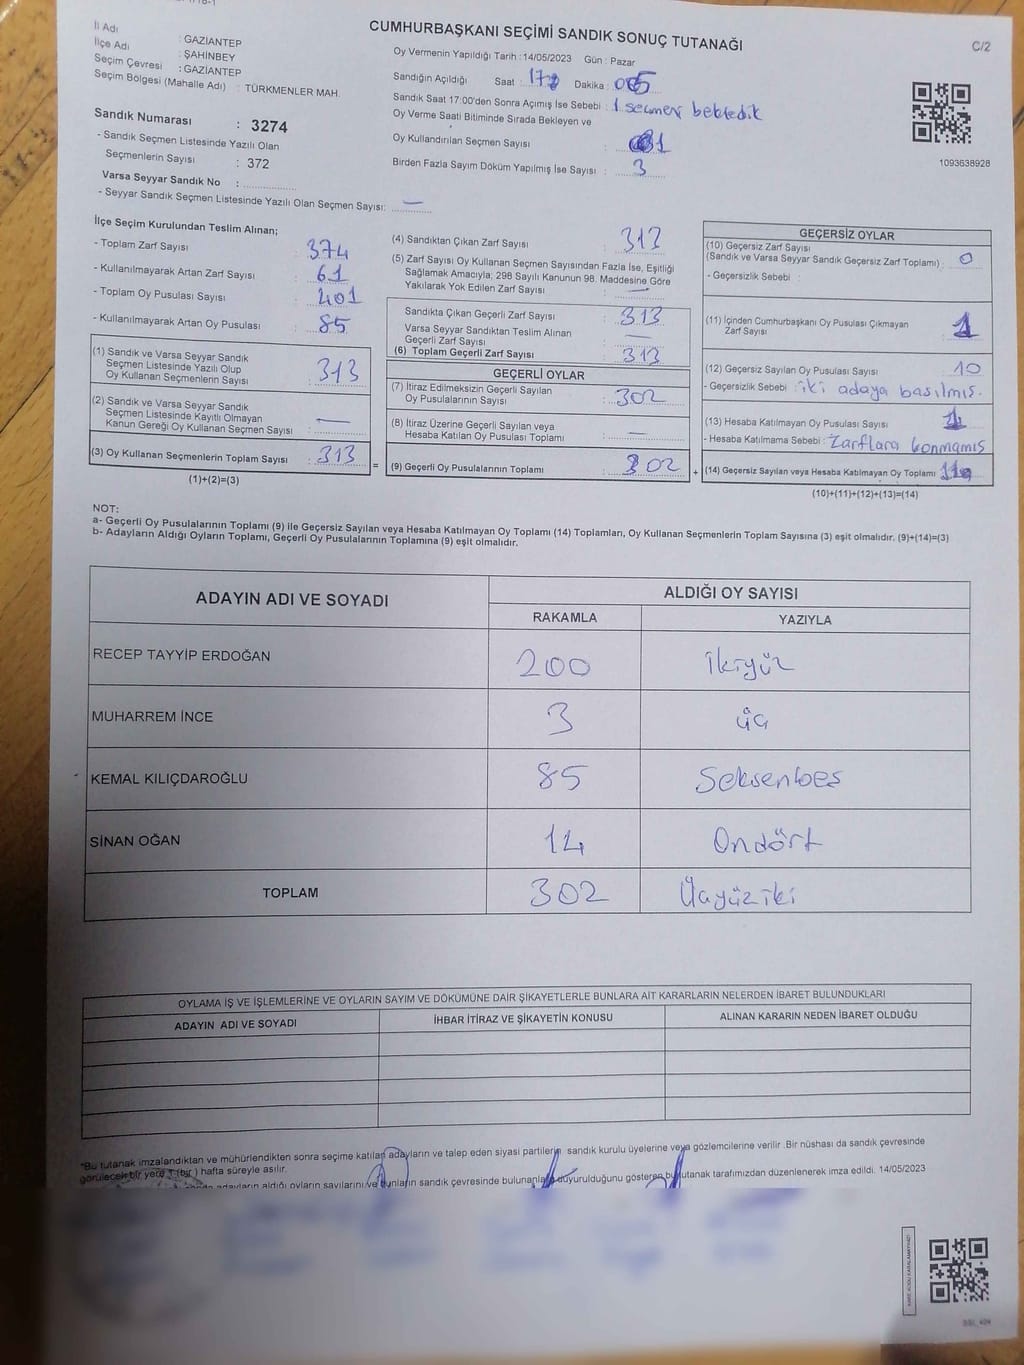 CUMHURBAŞKANI SEÇİMİ SANDIK SONUÇ TUTANAĞI
C/2
İl Adı : GAZİANTEP
İlçe Adı : ŞAHİNBEY
Seçim Çevresi : GAZİANTEP
Seçim Bölgesi (Mahalle Adı) : TÜRKMENLER MAH.
Sandık Numarası : 3274
- Sandık Seçmen Listesinde Yazılı Olan
Seçmenlerin Sayısı : 372
Varsa Seyyar Sandık No :
- Seyyar Sandık Seçmen Listesinde Yazılı Olan Seçmen Sayısı: —
Oy Vermenin Yapıldığı Tarih : 14/05/2023 Gün : Pazar
Sandığın Açıldığı Saat : 17 Dakika : 05
Sandık Saat 17:00'den Sonra Açımış İse Sebebi : 1 seçmen bekledik
Oy Verme Saati Bitiminde Sırada Bekleyen ve
Oy Kullandırılan Seçmen Sayısı : 1
Birden Fazla Sayım Döküm Yapılmış İse Sayısı : 3
1093638928
İlçe Seçim Kurulundan Teslim Alınan;
- Toplam Zarf Sayısı : 374
- Kullanılmayarak Artan Zarf Sayısı : 61
- Toplam Oy Pusulası Sayısı : 401
- Kullanılmayarak Artan Oy Pusulası : 85
(1) Sandık ve Varsa Seyyar Sandık
Seçmen Listesinde Yazılı Olup
Oy Kullanan Seçmenlerin Sayısı : 313
(2) Sandık ve Varsa Seyyar Sandık
Seçmen Listesinde Kayıtlı Olmayan
Kanun Gereği Oy Kullanan Seçmen Sayısı : —
(3) Oy Kullanan Seçmenlerin Toplam Sayısı : 313
(1)+(2)=(3)
=
(4) Sandıktan Çıkan Zarf Sayısı : 313
(5) Zarf Sayısı Oy Kullanan Seçmen Sayısından Fazla İse, Eşitliği
Sağlamak Amacıyla; 298 Sayılı Kanunun 98. Maddesine Göre
Yakılarak Yok Edilen Zarf Sayısı : —
Sandıkta Çıkan Geçerli Zarf Sayısı : 313
Varsa Seyyar Sandıktan Teslim Alınan
Geçerli Zarf Sayısı : —
(6) Toplam Geçerli Zarf Sayısı : 313
GEÇERLİ OYLAR
(7) İtiraz Edilmeksizin Geçerli Sayılan
Oy Pusulalarının Sayısı : 302
(8) İtiraz Üzerine Geçerli Sayılan veya
Hesaba Katılan Oy Pusulası Toplamı : —
(9) Geçerli Oy Pusulalarının Toplamı : 302
+
GEÇERSİZ OYLAR
(10) Geçersiz Zarf Sayısı
(Sandık ve Varsa Seyyar Sandık Geçersiz Zarf Toplamı) : 0
- Geçersizlik Sebebi :
(11) İçinden Cumhurbaşkanı Oy Pusulası Çıkmayan
Zarf Sayısı : 1
(12) Geçersiz Sayılan Oy Pusulası Sayısı : 10
- Geçersizlik Sebebi : iki adaya basılmış.
(13) Hesaba Katılmayan Oy Pusulası Sayısı :
- Hesaba Katılmama Sebebi : Zarflara konmamış
(14) Geçersiz Sayılan veya Hesaba Katılmayan Oy Toplamı : 11
(10)+(11)+(12)+(13)=(14)
NOT:
a- Geçerli Oy Pusulalarının Toplamı (9) ile Geçersiz Sayılan veya Hesaba Katılmayan Oy Toplamı (14) Toplamları, Oy Kullanan Seçmenlerin Toplam Sayısına (3) eşit olmalıdır. (9)+(14)=(3)
b- Adayların Aldığı Oyların Toplamı, Geçerli Oy Pusulalarının Toplamına (9) eşit olmalıdır.
ADAYIN ADI VE SOYADI ALDIĞI OY SAYISI
RAKAMLA YAZIYLA
RECEP TAYYİP ERDOĞAN 200 ikiyüz
MUHARREM İNCE 3 üç
KEMAL KILIÇDAROĞLU 85 Seksenbeş
SİNAN OĞAN 14 Ondört
TOPLAM 302 Üçyüziki
OYLAMA İŞ VE İŞLEMLERİNE VE OYLARIN SAYIM VE DÖKÜMÜNE DAİR ŞİKAYETLERLE BUNLARA AİT KARARLARIN NELERDEN İBARET BULUNDUKLARI
ADAYIN ADI VE SOYADI İHBAR İTİRAZ VE ŞİKAYETİN KONUSU ALINAN KARARIN NEDEN İBARET OLDUĞU
"Bu tutanak imzalandıktan ve mühürlendikten sonra seçime katılan adayların ve talep eden siyasi partilerin sandık kurulu üyelerine veya gözlemcilerine verilir. Bir nüshası da sandık çevresinde
görülecek bir yere 1 (bir) hafta süreyle asılır.
adayların aldığı oyların sayılarını ve bunların sandık çevresinde bulunanlara duyurulduğunu gösteren bu tutanak tarafımızdan düzenlenerek imza edildi. 14/05/2023